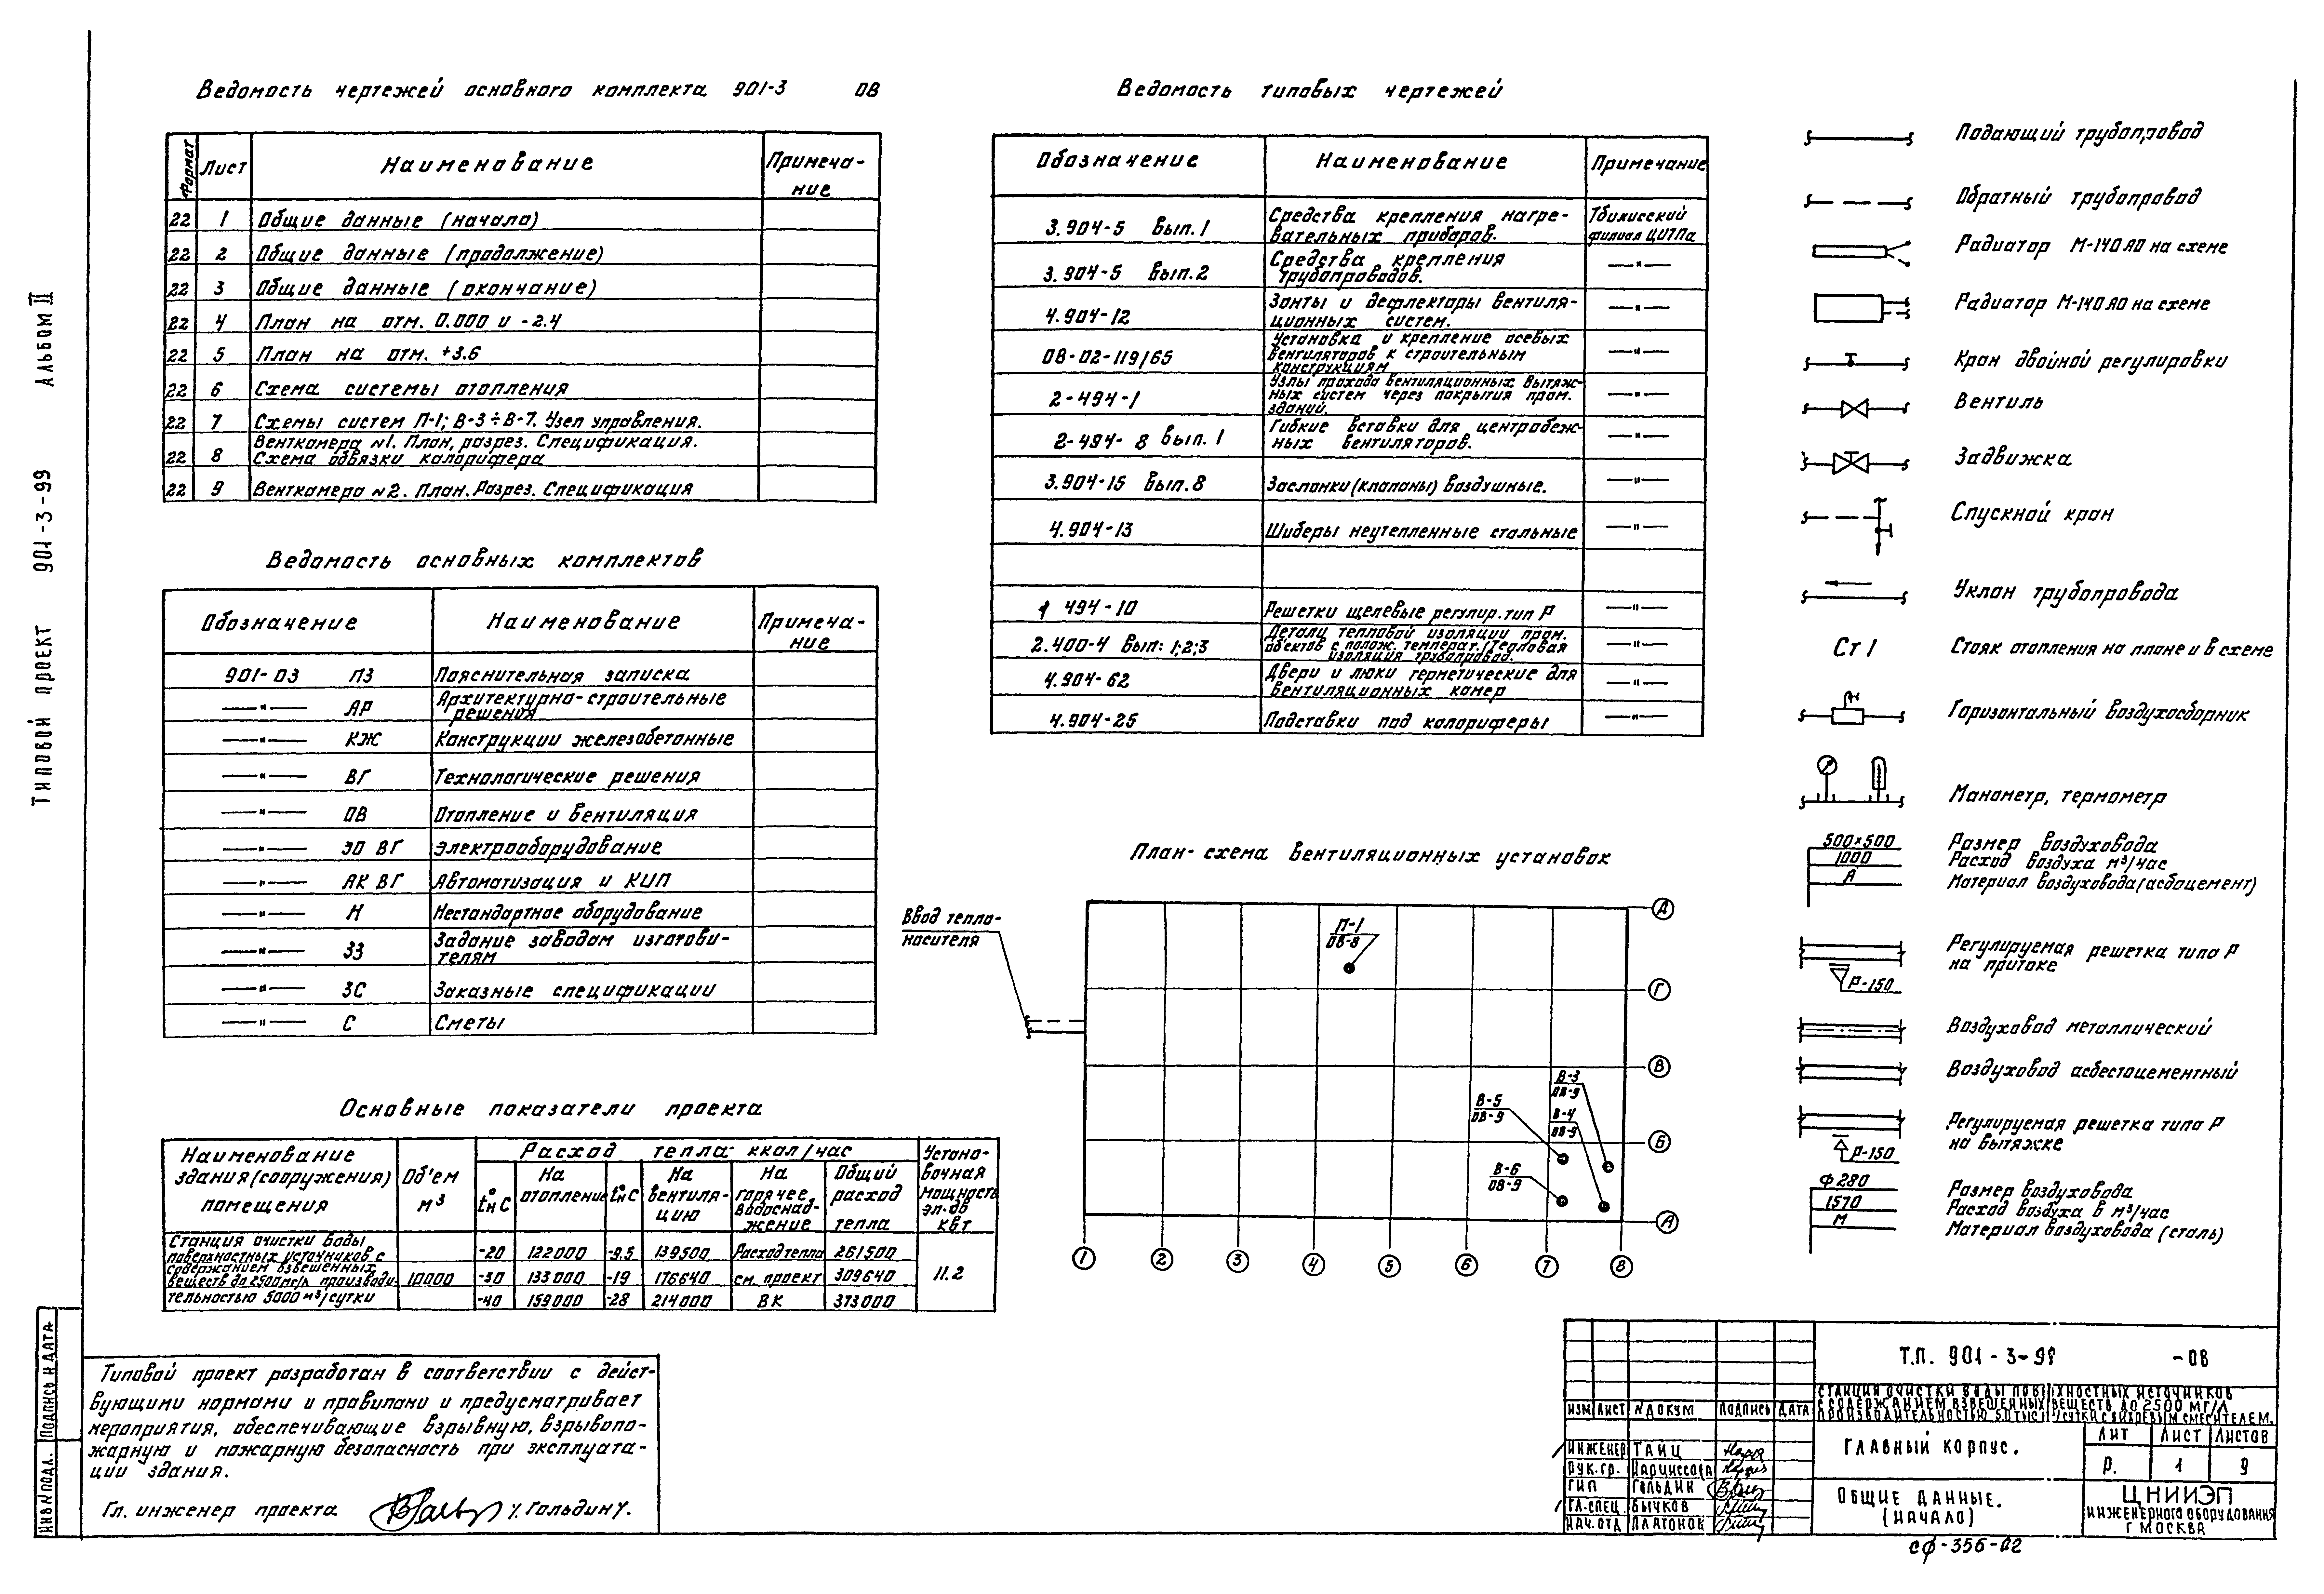 Типовой проект 901-3-99 Альбом II
Ведомость чертежей основного комплекта 901-3 ОВ
Формат Лист Наименование Примечание
22 1 Общие данные (начало)
22 2 Общие данные (продолжение)
22 3 Общие данные (окончание)
22 4 План на отм. 0.000 и -2.4
22 5 План на отм. +3.6
22 6 Схема системы отопления
22 7 Схемы систем П-1; В-3÷В-7. Узел управления.
22 8 Венткамера №1. План, разрез. Спецификация.
Схема обвязки калорифера
22 9 Венткамера №2. План. Разрез. Спецификация
Ведомость основных комплектов
Обозначение Наименование Примеча-
ние
901-03 ПЗ Пояснительная записка
—"— АР Архитектурно-строительные
решения
—"— КЖ Конструкции железобетонные
—"— ВГ Технологические решения
—"— ОВ Отопление и вентиляция
—"— ЭО ВГ Электрооборудование
—"— АК ВГ Автоматизация и КИП
—"— Н Нестандартное оборудование
—"— ЗЗ Задание заводам изготови-
телям
—"— ЗС Заказные спецификации
—"— С Сметы
Основные показатели проекта
Наименование
здания (сооружения)
помещения
Об'ем
м³
Расход тепла ккал/час
tн°С
На
отопление
tн°С
На
вентиля-
цию
На
горячее
водоснаб-
жение
Общий
расход
тепла
Устано-
вочная
мощность
эл.дв
квт
Станция очистки воды
поверхностных источников с
содержанием взвешенных
веществ до 2500мг/л производи-
тельностью 5000 м³/сутки
10000
-20 122000 -9.5 139500 Расход тепла 261500
-30 133000 -19 176640 см. проект 309640 11.2
-40 159000 -28 214000 ВК 373000
Типовой проект разработан в соответствии с дейст-
вующими нормами и правилами и предусматривает
мероприятия, обеспечивающие взрывную, взрывопо-
жарную и пожарную безопасность при эксплуата-
ции здания.
Гл. инженер проекта /. Гольдин /.
Ведомость типовых чертежей
Обозначение Наименование Примечание
3.904-5 Вып.1 Средства крепления нагре-
вательных приборов. Тбилисский
филиал ЦИТПа
3.904-5 Вып.2 Средства крепления
трубопроводов. —"—
4.904-12 Зонты и дефлекторы вентиля-
ционных систем. —"—
08-02-119/65 Установка и крепление осевых
вентиляторов к строительным
конструкциям —"—
2-494-1 Узлы прохода вентиляционных вытяж-
ных систем через покрытия пром.
зданий. —"—
2-494-8 вып.1 Гибкие вставки для центробеж-
ных вентиляторов. —"—
3.904-15 Вып.8 Заслонки (клапаны) воздушные. —"—
4.904-13 Шиберы неутепленные стальные —"—
1 494-10 Решетки щелевые регулир. тип Р —"—
2.400-4 Вып: 1;2;3 Детали тепловой изоляции пром.
об'ектов с полож. температ. (Тепловая
изоляция трубопровод. —"—
4.904-62 Двери и люки герметические для
вентиляционных камер —"—
4.904-25 Подставки под калориферы —"—
План-схема вентиляционных установок
Ввод тепло-
носителя
П-1
ОВ-8
В-3
ОВ-9
В-5
ОВ-9
В-4
ОВ-9
В-6
ОВ-9
Д
Г
В
Б
А
1 2 3 4 5 6 7 8
Подающий трубопровод
Обратный трубопровод
Радиатор М-140 АО на схеме
Радиатор М-140 АО на схеме
Кран двойной регулировки
Вентиль
Задвижка
Спускной кран
Уклон трубопровода
Ст 1 Стояк отопления на плане и в схеме
Горизонтальный воздухосборник
Манометр, термометр
500×500 Размер воздуховода
1000 Расход воздуха м³/час
А Материал воздуховода (асбоцемент)
Регулируемая решетка типа Р
на притоке
Р-150
Воздуховод металлический
Воздуховод асбестоцементный
Регулируемая решетка типа Р
на вытяжке
Р-150
Ф280 Размер воздуховода
1570 Расход воздуха в м³/час
М Материал воздуховода (сталь)
Т.П. 901-3-99 -ОВ
СТАНЦИЯ ОЧИСТКИ ВОДЫ ПОВЕРХНОСТНЫХ ИСТОЧНИКОВ
С СОДЕРЖАНИЕМ ВЗВЕШЕННЫХ ВЕЩЕСТВ ДО 2500 МГ/Л
ПРОИЗВОДИТЕЛЬНОСТЬЮ 5.0 ТЫС. /СУТКИ С ВИХРЕВЫМ СМЕСИТЕЛЕМ.
ИЗМ ЛИСТ № ДОКУМ ПОДПИСЬ ДАТА
ИНЖЕНЕР ТАЙЦ
РУК.ГР. НАРЦИССОВА
ГИП ГОЛЬДИН
ГЛ.СПЕЦ БЫЧКОВ
НАЧ.ОТД ПЛАТОНОВ
ГЛАВНЫЙ КОРПУС.
ЛИТ ЛИСТ ЛИСТОВ
Р. 1 9
ОБЩИЕ ДАННЫЕ.
(НАЧАЛО)
ЦНИИЭП
ИНЖЕНЕРНОГО ОБОРУДОВАНИЯ
Г МОСКВА
сф-356-02
ИНВ № ПОДЛ. ПОДПИСЬ И ДАТА